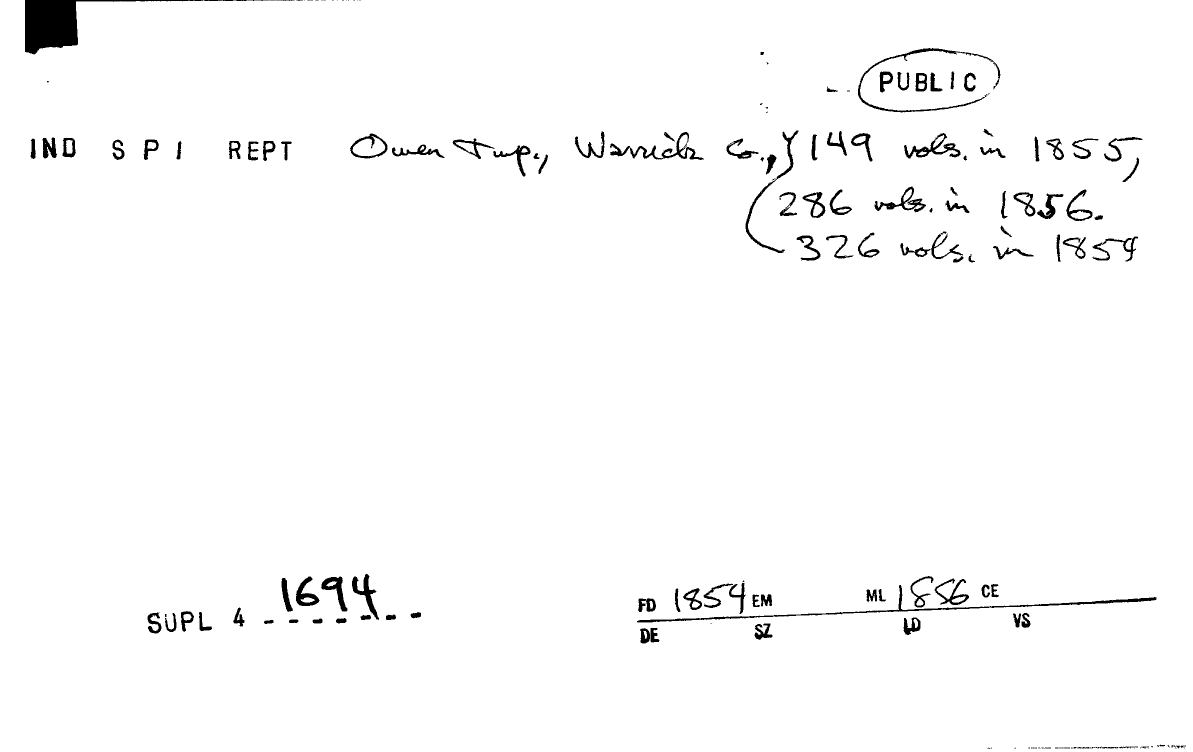 PUBLIC
IND S P I REPT Owen Twp., Warrick Co., 149 vols. in 1855,
286 vols. in 1856.
326 vols. in 1854
SUPL 4 1694
FD 1854 EM ML 1856 CE
DE SZ LD VS